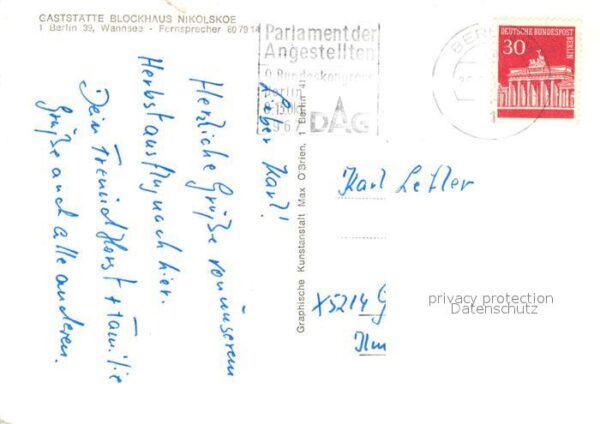 GASTSTÄTTE BLOCKHAUS NIKOLSKOE
1 Berlin 39, Wannsee - Fernsprecher 60 79 14
Parlament der
Angestellten
9. Bundeskongress
Berlin
DAG
BERLIN
30
DEUTSCHE BUNDESPOST
BERLIN
Lieber Karl!
Herzliche Grüße von unserem
Herbstausflug nach hier.
Dein Freund Horst + Familie
Grüße auch alle anderen.
Graphische Kunstanstalt Max O'Brien, 1 Berlin 41
Karl Lefler
X5214 G
Ilm
privacy protection
Datenschutz